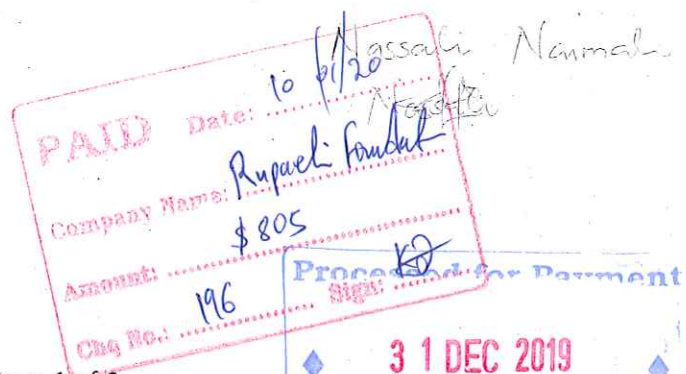 Nassali Naimah
PAID Date: 10/01/20
Company Name: Ruparelia Foundat
Amount: $805
Chq No.: 196 Sign:
Processed for Payment
31 DEC 2019